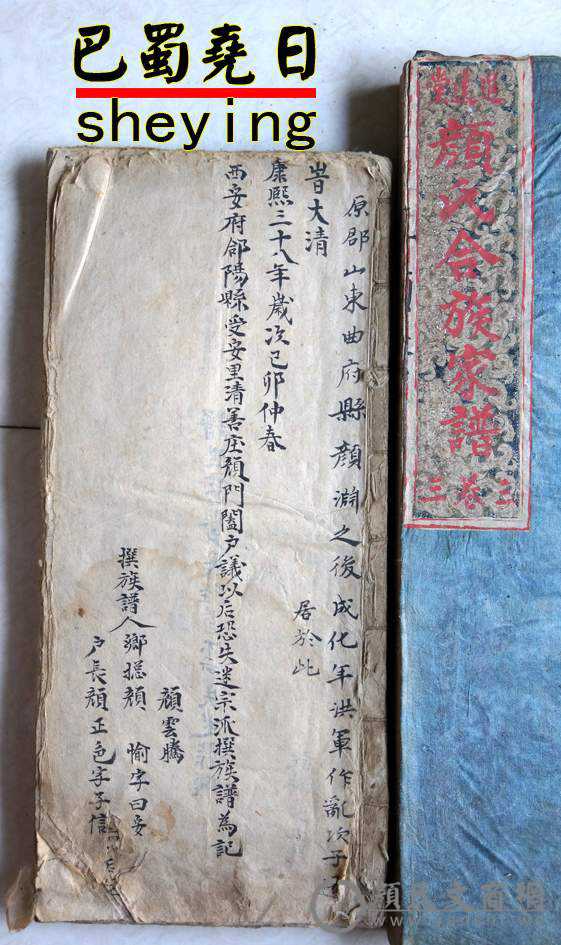 巴蜀堯日
sheying
顏氏合族家譜
三卷三
原郡山東曲府縣顏淵之後成化年洪軍作亂次子
居於此
昔大清
康熙三十八年歲次己卯仲春
西安府郃陽縣受安里清善庄顏門闔户議以后恐失迷宗派撰族譜為記
顏雲騰
撰族譜人鄉摠顏 愉字曰安
户長顏正色字子信